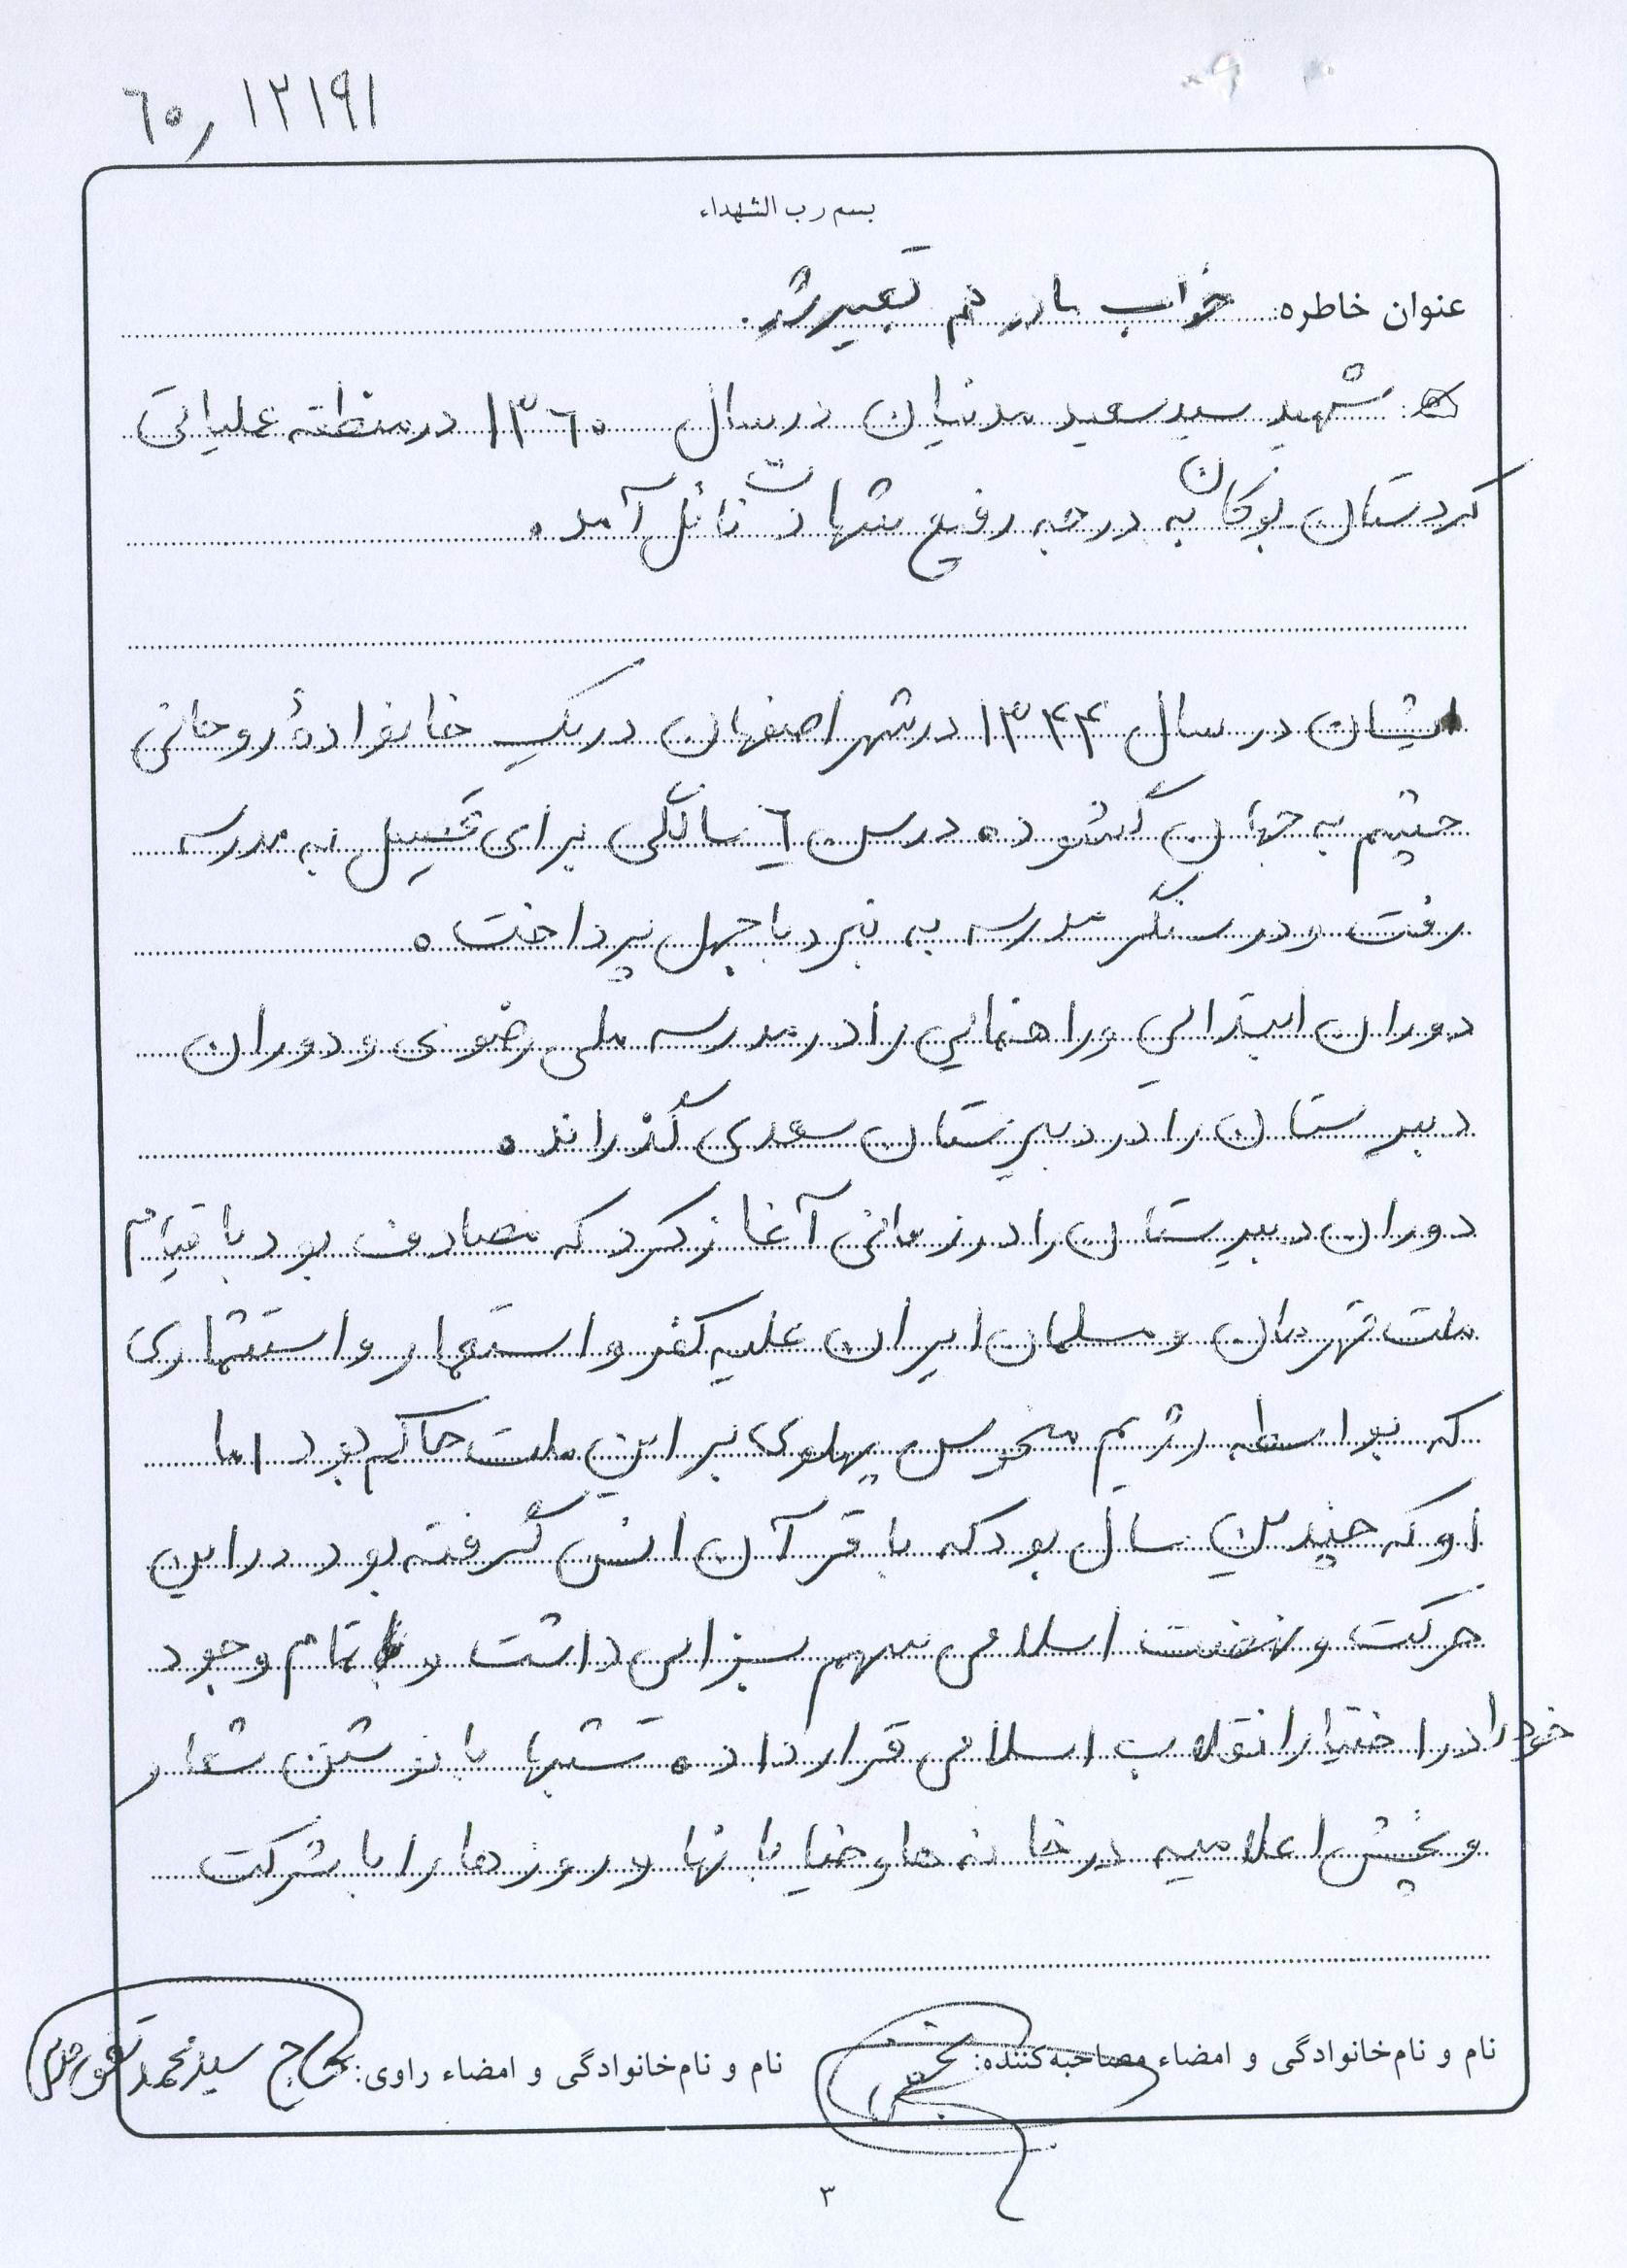 ۶۵ر۱۲۱۹۱
بسم رب الشهداء
عنوان خاطره: خواب مادرم تعبیر شد.
شهید سید سعید مدنیان در سال ۱۳۶۰ در منطقه عملیاتی
کردستان بوکان به درجه رفیع شهادت نائل آمد.
ایشان در سال ۱۳۴۴ در شهر اصفهان در یک خانوادهٔ روحانی
چشم به جهان گشود. در سن ۶ سالگی برای تحصیل به مدرسه
رفت و در سنگر مدرسه به نبرد با جهل پرداخت.
دوران ابتدائی و راهنمایی را در مدرسه ملی رضوی و دوران
دبیرستان را در دبیرستان سعدی گذراند.
دوران دبیرستان را در زمانی آغاز کرد که مصادف بود با قیام
ملت قهرمان و مسلمان ایران علیه کفر و استعمار و استثماری
که بواسطه رژیم منحوس پهلوی بر این ملت حاکم بود اما
او که چندین سال بود که با قرآن انس گرفته بود در این
حرکت و نهضت اسلامی سهم بسزایی داشت و با تمام وجود
خود را در اختیار انقلاب اسلامی قرار داد. شبها با نوشتن شعار
و پخش اعلامیه در خانه ها و خیابانها و روزها را با شرکت
نام و نام‌خانوادگی و امضاء مصاحبه‌کننده:
نام و نام‌خانوادگی و امضاء راوی: حاج سید محمد تقی
۳